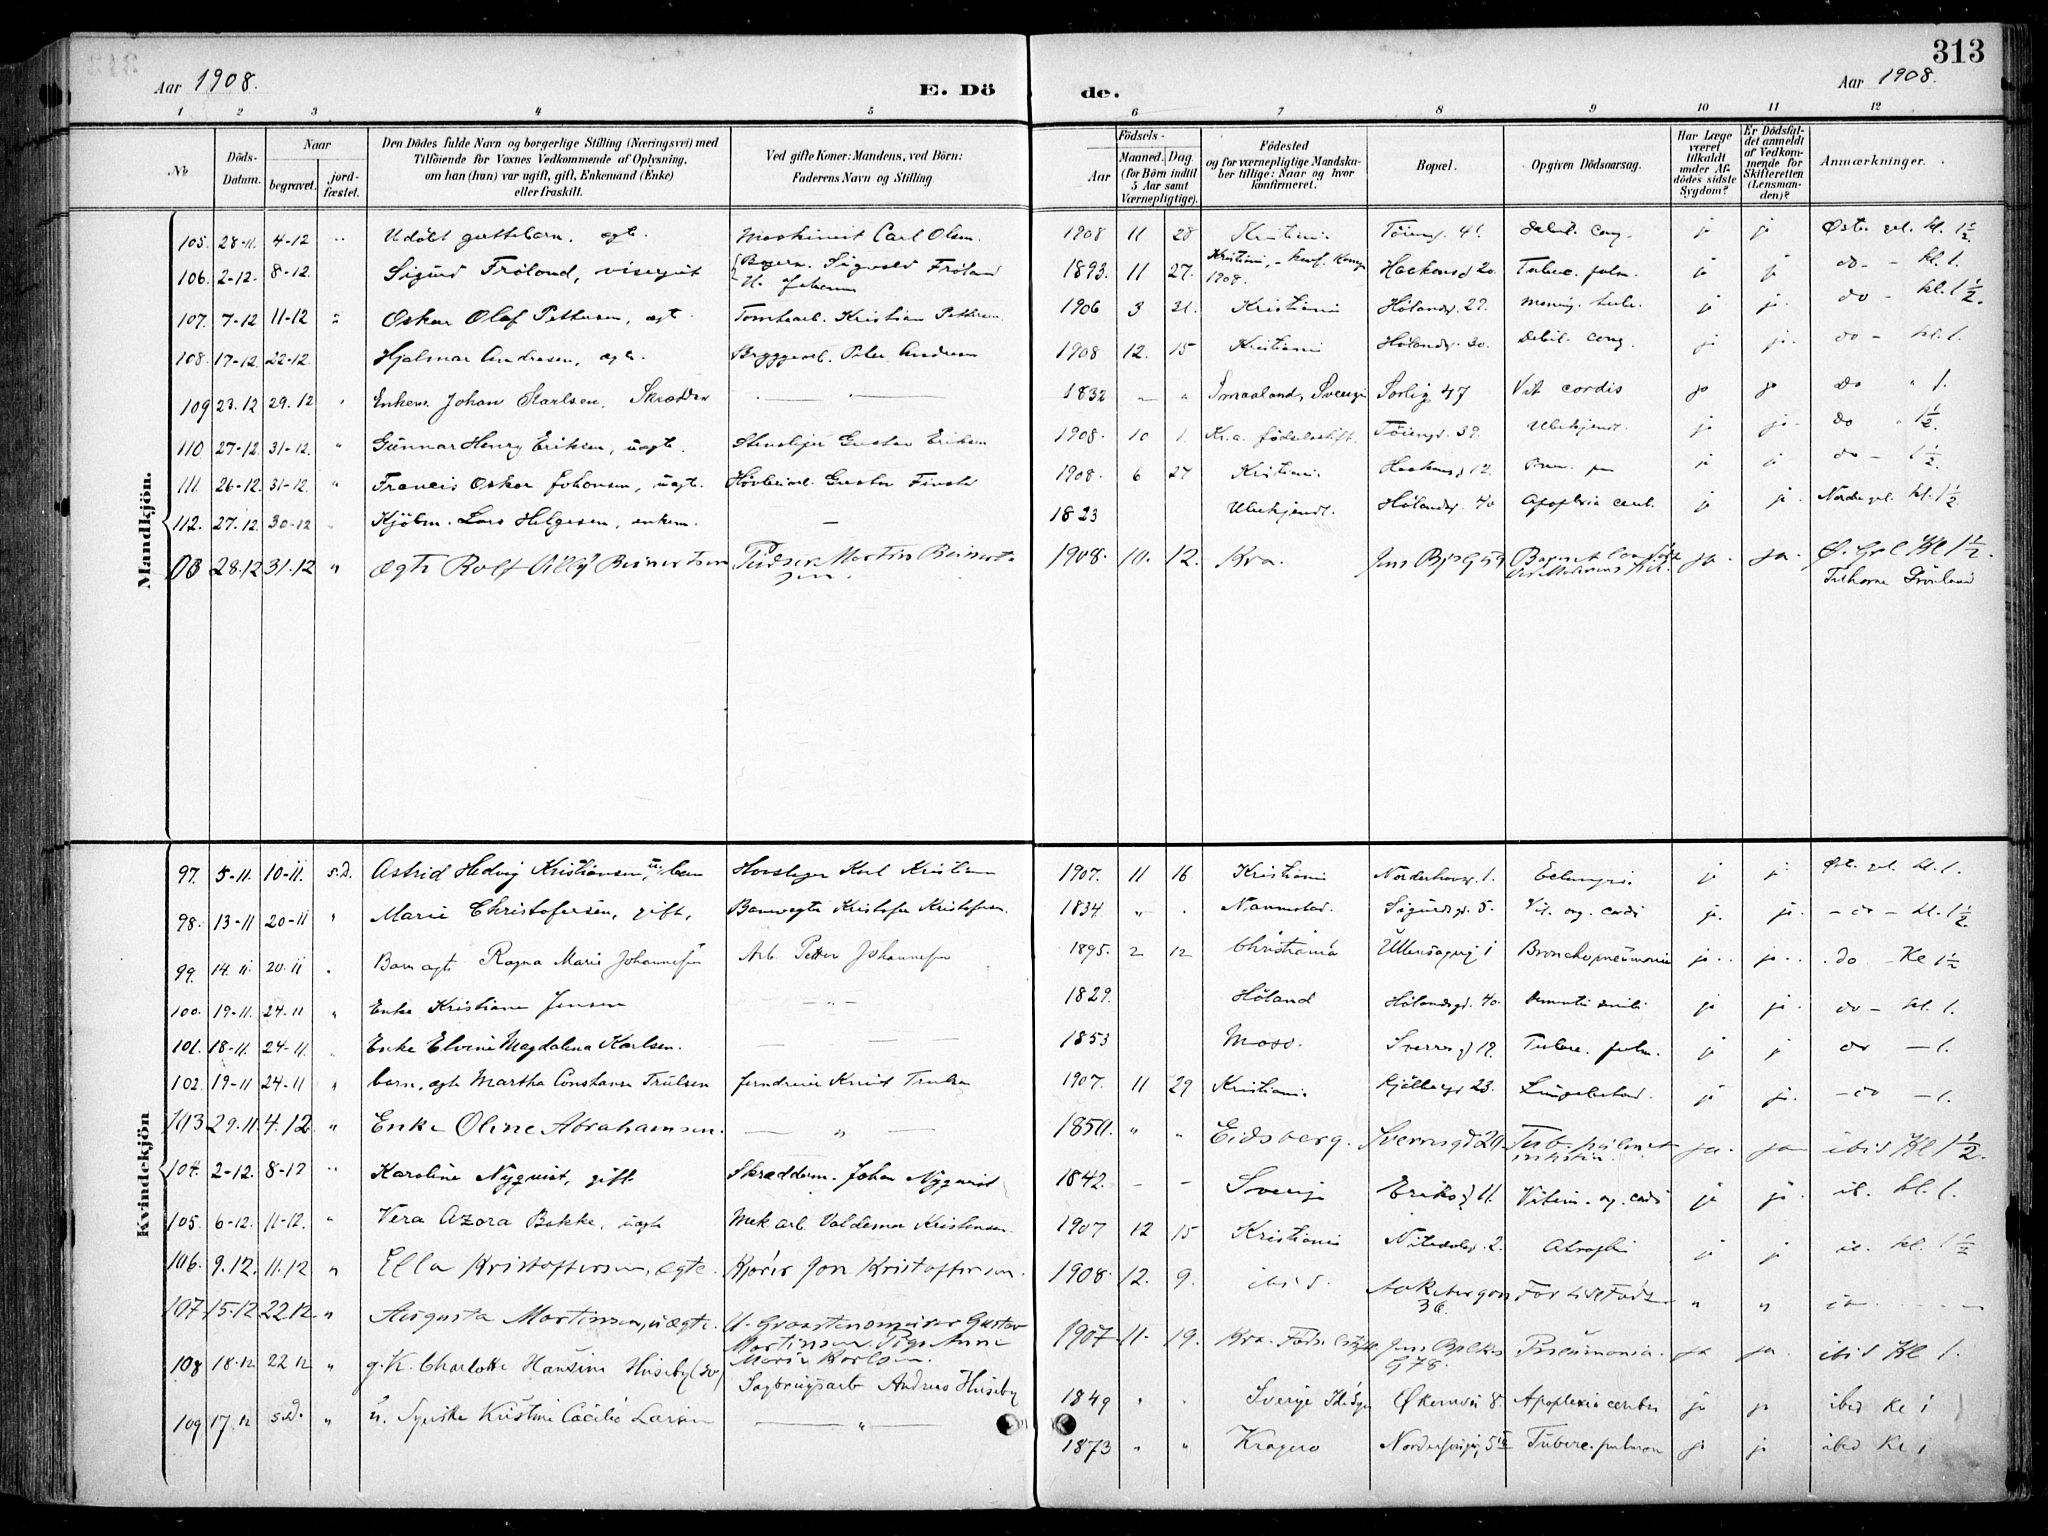 313
Aar 1908. E. Dö de. Aar 1908.
1 2 3 4 5 6 7 8 9 10 11 12
No Döds-Datum. Naar begravet. jordfæstet. Den Dödes fulde Navn og borgerlige Stilling (Næringsvei) med Tilföiende for Voxnes Vedkommende af Oplysning, om han (hun) var ugift, gift, Enkemand (Enke) eller fraskilt. Ved gifte Koner: Mandens, ved Börn: Faderens Navn og Stilling. Aar Födsels- Maaned. Dag. (for Börn indtil 5 Aar samt Værnepligtige). Födested og for værnepligtige Mandskaber tillige: Naar og hvor konfirmeret. Bopæl. Opgiven Dödsaarsag. Har Læge været tilkaldt under Afdödes sidste Sygdom? Er Dödsfaldet anmeldt af Vedkommende for Skifteretten (Lensmanden)? Anmærkninger.
Mandkjön.
105. 28-11. 4-12 " Udöbt guttebarn, ægte. Maskinist Carl Olsen. 1908 11 28 Kristiania Töieng. 41. Debil. cong. ja ja Østre grl. kl. 1½.
106. 2-12. 8-12. Sigurd Fröland, visergut Sigvald Fröland 1893. 11 27. Kristiania, 1908. Haakonsg 20. Tuberc. pulm. ja ja do - kl. 1.
107. 7-12 11-12 " Oskar Olaf Pettersen, ægte. Tomtearb. Kristian Pettersen 1906 3 21. Kristiania Hölandsg. 27. Mening. tub. ja ja. do - kl. 1½
108. 17-12 22-12. Hjalmar Andresen, ægte. Bryggearb. Peter Andresen 1908 12. 15 Kristiania Hölandsg. 30. Debil. cong. ja ja. do - kl. 1.
109 23.12 29.12 " Enkem. Johan Karlsen, Skrædder — 1832 - " Smaaland, Sverige Sörlig. 47 Vit cordis ja ja do " 1.
110 27-12. 31-12. " Gunnar Henry Eriksen, uægte. Stenhugger Gustav Eriksen 1908. 10 1. Kr.a. födselsstift. Töiengd. 39. Ubekjendt. ja ja. do " 1½.
111. 26-12. 31-12. " Francis Oskar Johansen, uægte. Hövleriarb. Gustav 1908. 6 27 Kristiania. Haakonsg 12. ja ja do - 1½.
112. 27.12. 30-12 " Kjöbm. Lars Helgesen, enkem. — 1823 Ubekjendt. Hölandsg. 40 Apoplexia cereb. ja ja. Nordre grl. kl. 1½
28.12 31.12 " ægte Rolf Willy Reinertsen Pudser Martin Reinertsen. 1908. 10. 12. Kra. Jens Bjelkes G 59 ja. ja. Ø. Grl Kl 1½.
Kvindekjön
97. 5-11. 10-11. s.D. Astrid Hedvig Kristiansen, u. barn Hovslager Karl Kristiansen 1907. 11 16 Kristiania Norderhovsg. 1. Eclampsi. ja ja. Øst. grl. kl. 1.
98. 13-11 20-11 " Marie Christofersen, gift, Banevogter Kristofer Kristofersen. 1834 " . Nannestad. Sigurdsg. 5. Vit. org. cordis ja. ja. - do - kl. 1½.
99. 14.11. 20.11 " Barn ægte Ragna Marie Johannesen Arb. Petter Johannesen 1895. 2 12 Christiania Ullensagerg 1 Bronchopneumonie ja. ja. do - Kl 1½
100. 19-11. 24-11 " Enke Kristiane Jensen — " — 1829. Höland Hölandsgd. 40. Dementia senilis ja ja. do - kl. 1.
101. 18-11. 24-11. " Enke Elvine Magdalena Karlsen. — — 1853 Moss. Sverresg 19. Tuberc. pulm. ja ja do - 1.
102. 19-11 24-11 " barn, ægte Martha Constance Trulsen Jerndreier Knut Trulsen 1907. 11 29 Kristiania. Gjöllbergd. 23. Lungebetænd. ja ja. - do - 1.
103 29.11 4.12 " Enke Oline Abrahamsen. — " — 1850. " " Eidsberg. Sverresgd 20. Tub. pulm. et intestin. ja. ja ibid Kl 1½.
104. 2-12. 8-12 " Karoline Nyquist, gift Skrædderm. Johan Nyquist 1842. - - Sverige Eriksg 11. Vitium org. cordis ja ja. ib. kl. 1.
105. 6-12. 11-12. " Vera Azora Bakke, uægte Mek arb. Valdemar Kristensen. 1907 12 15 Kristiania Nitedalsg. 2. Atrophi ja ja ib. kl. 1½
106. 9.12. 11.12 " Ella Kristoffersen, ægte. Kjörer Jon Kristoffersen. 1908. 12. 9. ibid. Aakebergvn 36. For tidl Föds " " ib.
107 15.12 22.12. " Augusta Martinsen, uægte. U. Graastensmurer Gustav Martinsen. Pige Anne Marie Karlsen. 1907 11. 19. Kra. Föds. Jens Bjelkes G 78. Pneumonia. ja ja. ibid Kl 1.
108 18.12 22 12 " g.K. Charlotte Hansine Huseby Sagbrugsarb Andreas Huseby 1849 " . Sverige Økernvei 8. Apoplexia cerebri ja ja ibid Kl 1
109 17.12 s.D. " u. Syerske Kristine Cæcilie Larsen — " 1873 " " Kragerø Tuberc. pulmon ja ja ibid Kl 1